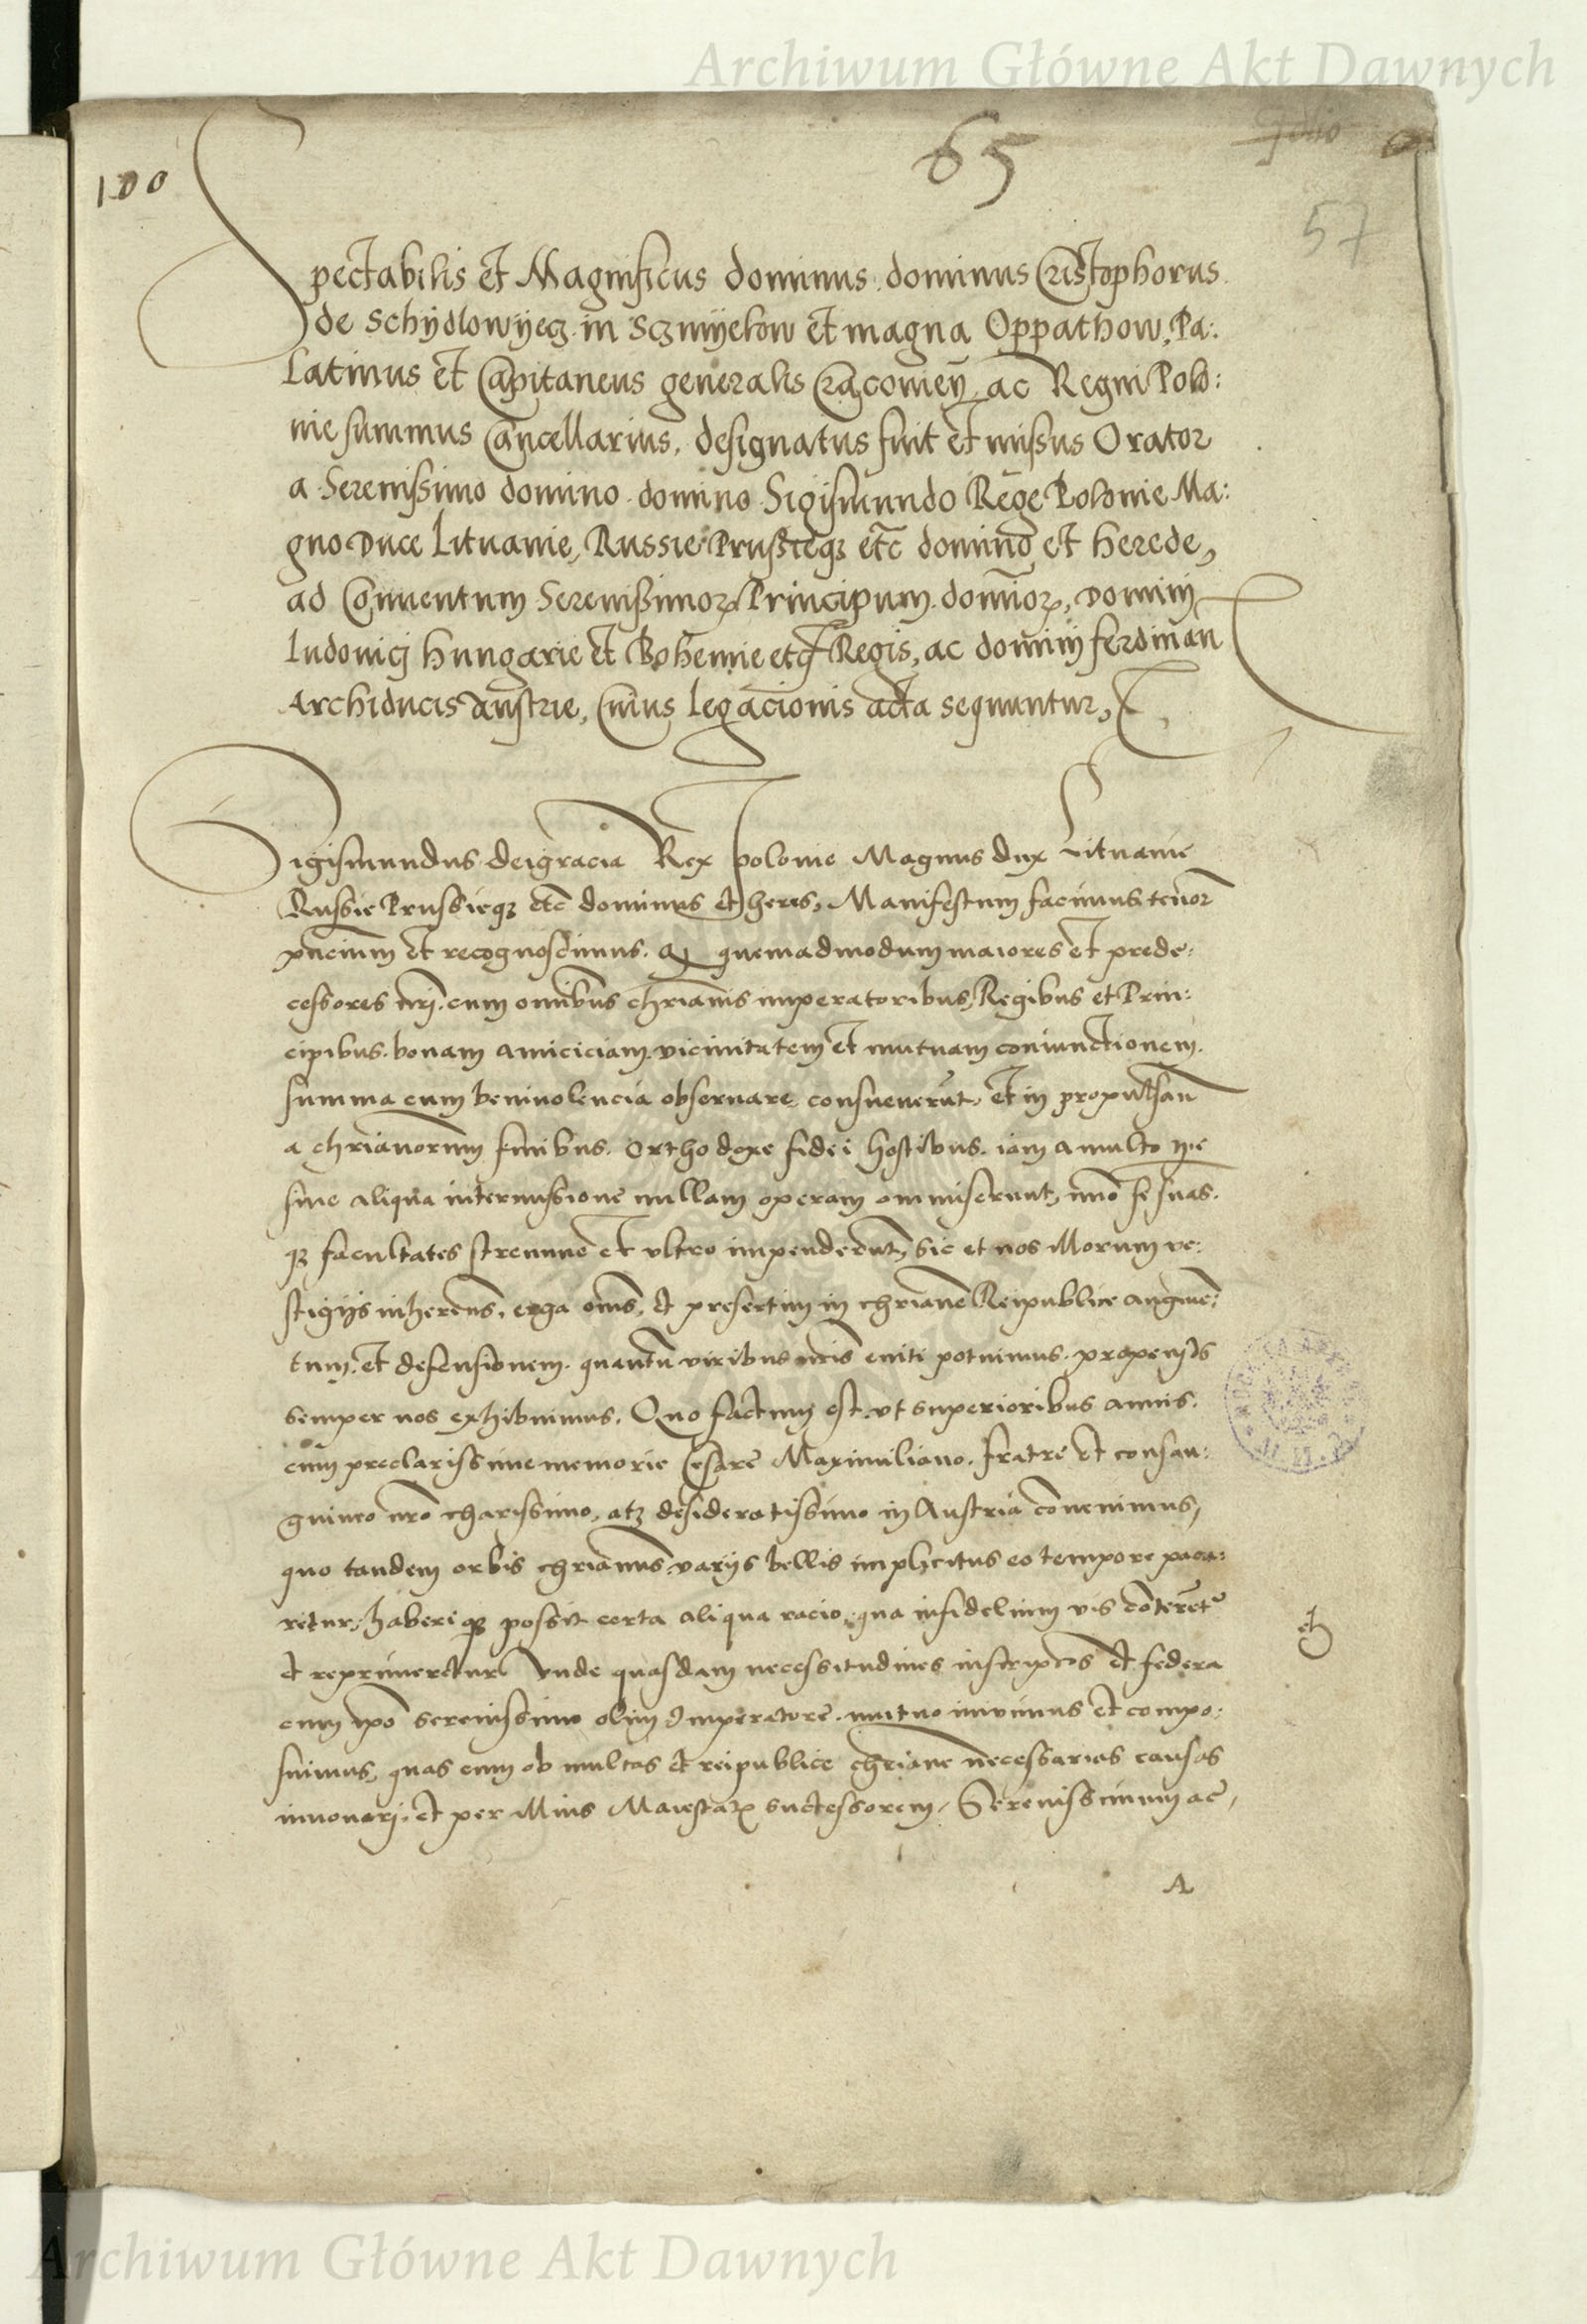 Archiwum Główne Akt Dawnych
100
65
57
Spectabilis et Magnificus dominus dominus Cristophorus
de Schydlowyecz in Sczmyelow et magna Oppathow, Pa:
latinus et Capitaneus generalis Cracovieñ ac Regni Polo:
nie summus Cancellarius, designatus fuit et missus Orator
a Serenissimo domino domino Sigismundo Rege Polonie Ma:
gno Duce Lituanie, Russie Prussieqz etc̄ domino et herede,
ad Conventum Serenissimoꝝ Principum domīoꝝ, Domini
Ludovicj Hungarie et Bohemie etc Regis, ac dominj ferdinan
Archiducis Austrie, Cuius legacionis acta sequuntur,
Sigismundus dei gracia Rex polonie Magnus dux Lituanie
Russie Prussieqz etc̄ dominus et heres, Manifestum facimus tenor̄
pn̄cium et recognoscimus. Q quemadmodum maiores et prede:
cessores nr̄j. cum omnibus chrianis imperatoribus, Regibus et Prin:
cipibus. bonam amiciciam vicinitatem et mutuam coniunctionem.
summa cum benivolencia observare consueverūt, et in propulsan̄
a chrianorum finibus. orthodoxe fidei hostibus. iam a multo tpe
sine aliqua intermissione nullam operam ommiserunt, imo se suas.
qz facultates strenuue et ultro impenderūt, sic et nos illorum ve:
stigijs inherens, erga oms, et presertim in chriane Reipublice augme:
tum et defensionem. quantū viribus nr̄is eniti potuimus. propensos
semper nos exhibuimus. Quo factum est ut superioribus annis.
cum preclarissime memorie Cesare Maximiliano. fratre et consan:
guineo nr̄o charissimo, atqz desideratissimo in Austria convenimus,
quo tandem orbis chrianus varijs bellis implicitus eo tempore paca:
retur, haberiqz possit certa aliqua racio, qua infidelium vis cōteret̄
et reprimeretur Unde quasdam necessitudines inscripc̄es et federa
cum ip̄o serenissimo olim Imperatore. mutuo inivimus et compo:
suimus, quas cum ob multas et reipublice chriane necessarias causas
innovarj. et per illius Maiestatꝭ successorem, Serenissimum ac,
A
Archiwum Główne Akt Dawnych